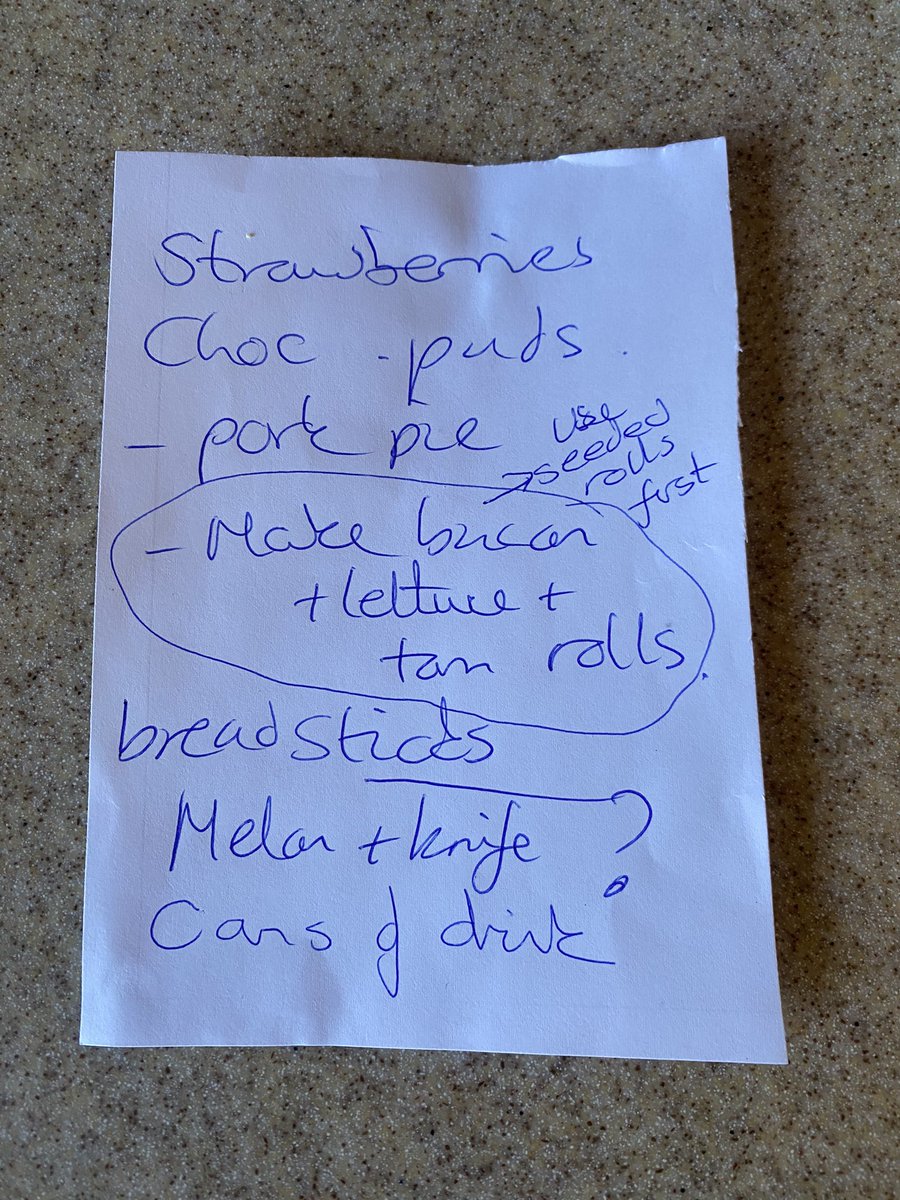 Strawberries
Choc puds.
- pork pie
use
seeded
rolls
first
- Make bacon
+ lettuce +
tom rolls.
breadsticks
Melon + knife ?
Cans of drink